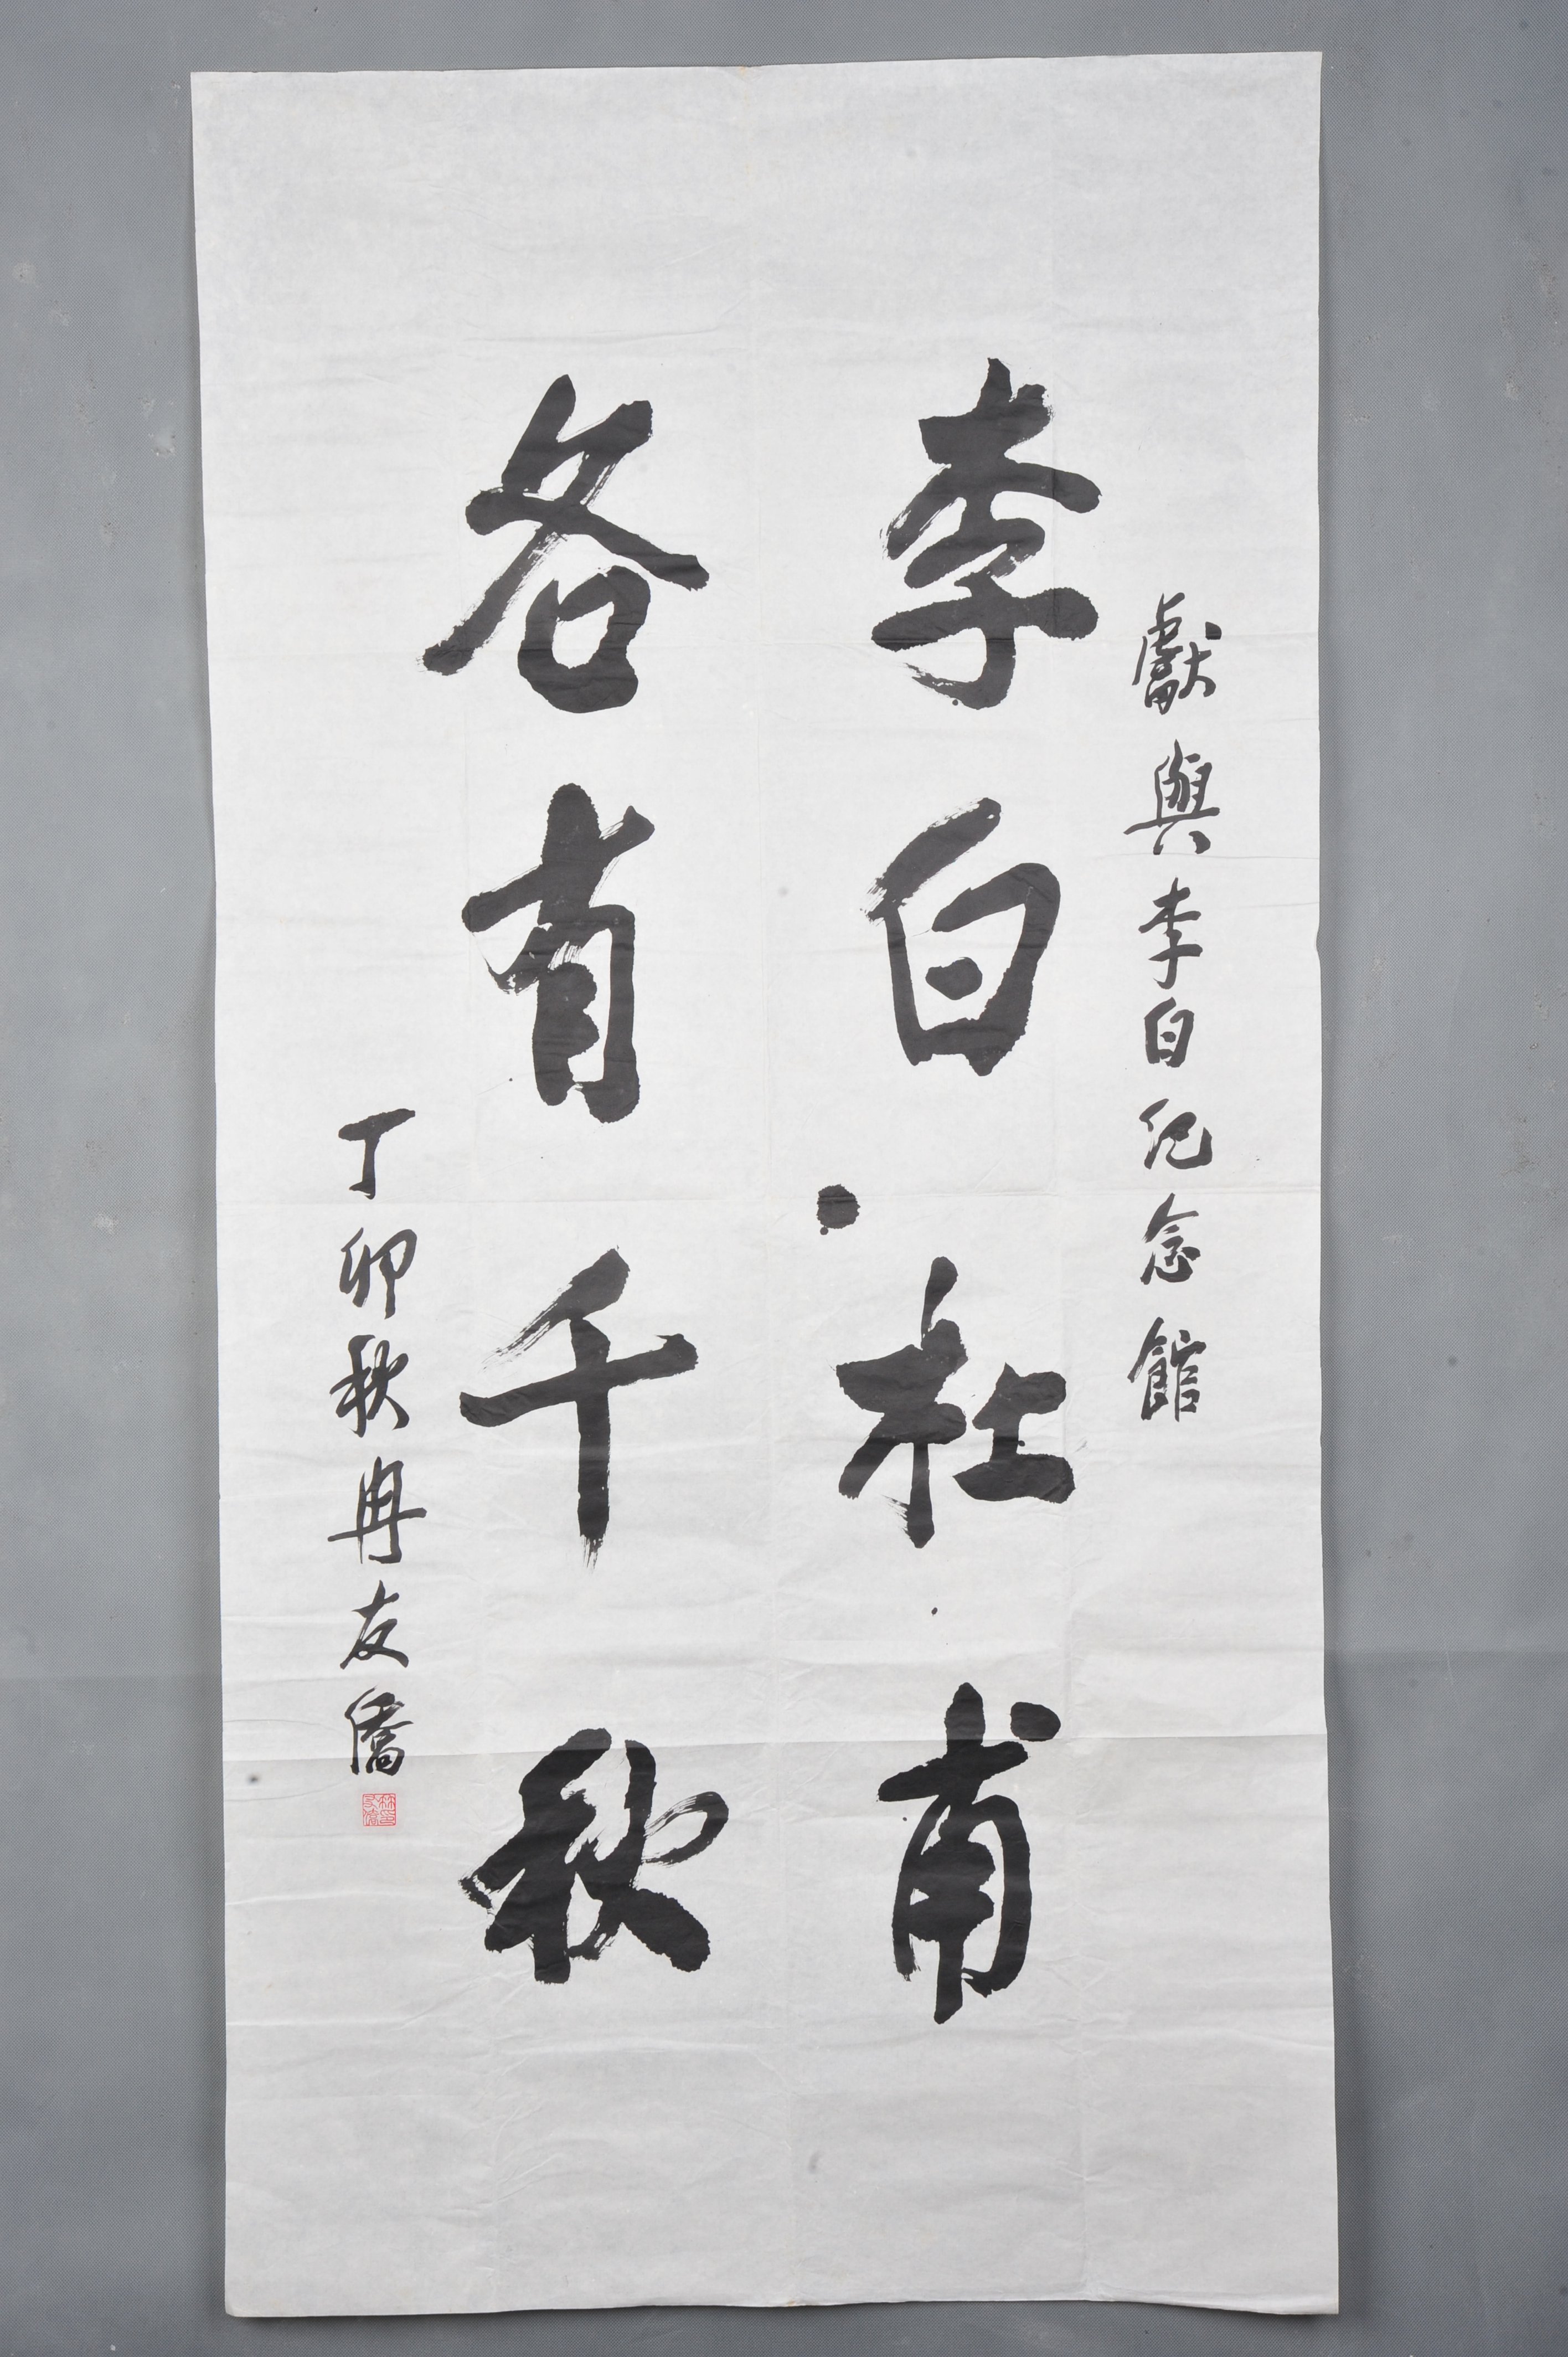 獻與李白纪念館
李白杜甫
各有千秋
丁卯秋冉友僑